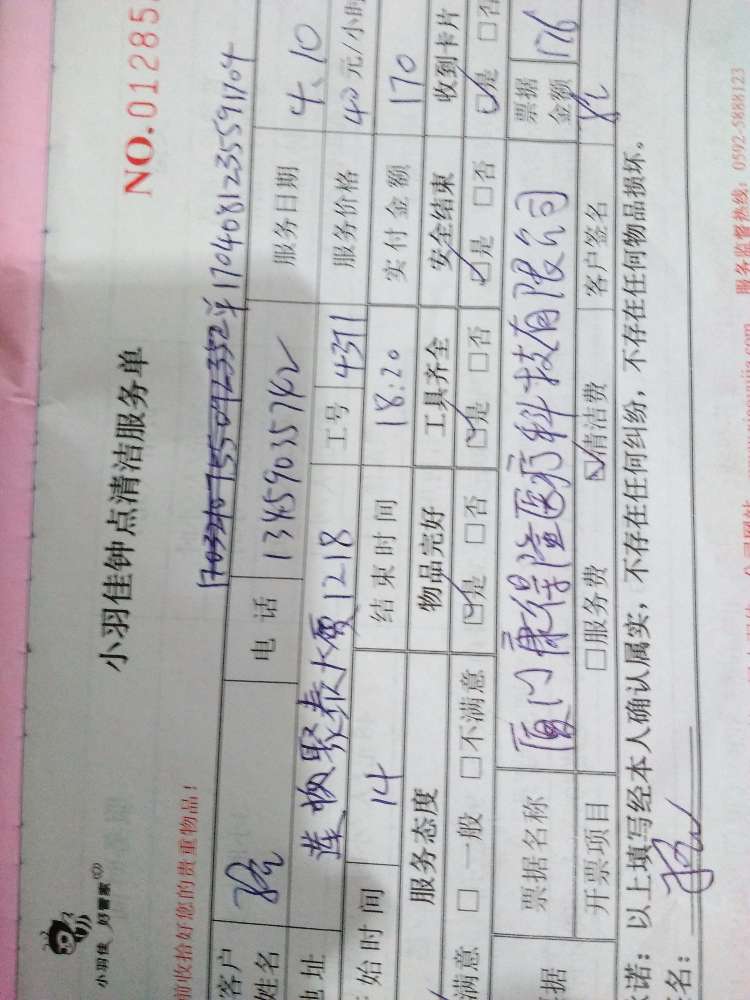 小羽佳 好管家
小羽佳钟点清洁服务单
NO.01285
前收拾好您的贵重物品!
1704081235591704
客户姓名
电话 13459035742
服务日期 4.10
地址 莲坂聚泰大厦1218
工号 4371
服务价格 40元/小时
始时间 14
结束时间 18:20
实付金额 170
服务态度
物品完好
工具齐全
安全结束
收到卡片
满意 □一般 □不满意
☑是 □否
☑是 □否
☑是 □否
☑是 □否
据
票据名称 厦门康得隆医疗科技有限公司
票据金额 176
开票项目 □服务费 ☑清洁费
客户签名
诺:以上填写经本人确认属实,不存在任何纠纷,不存在任何物品损坏。
名:
服务监督热线:0592-5888123